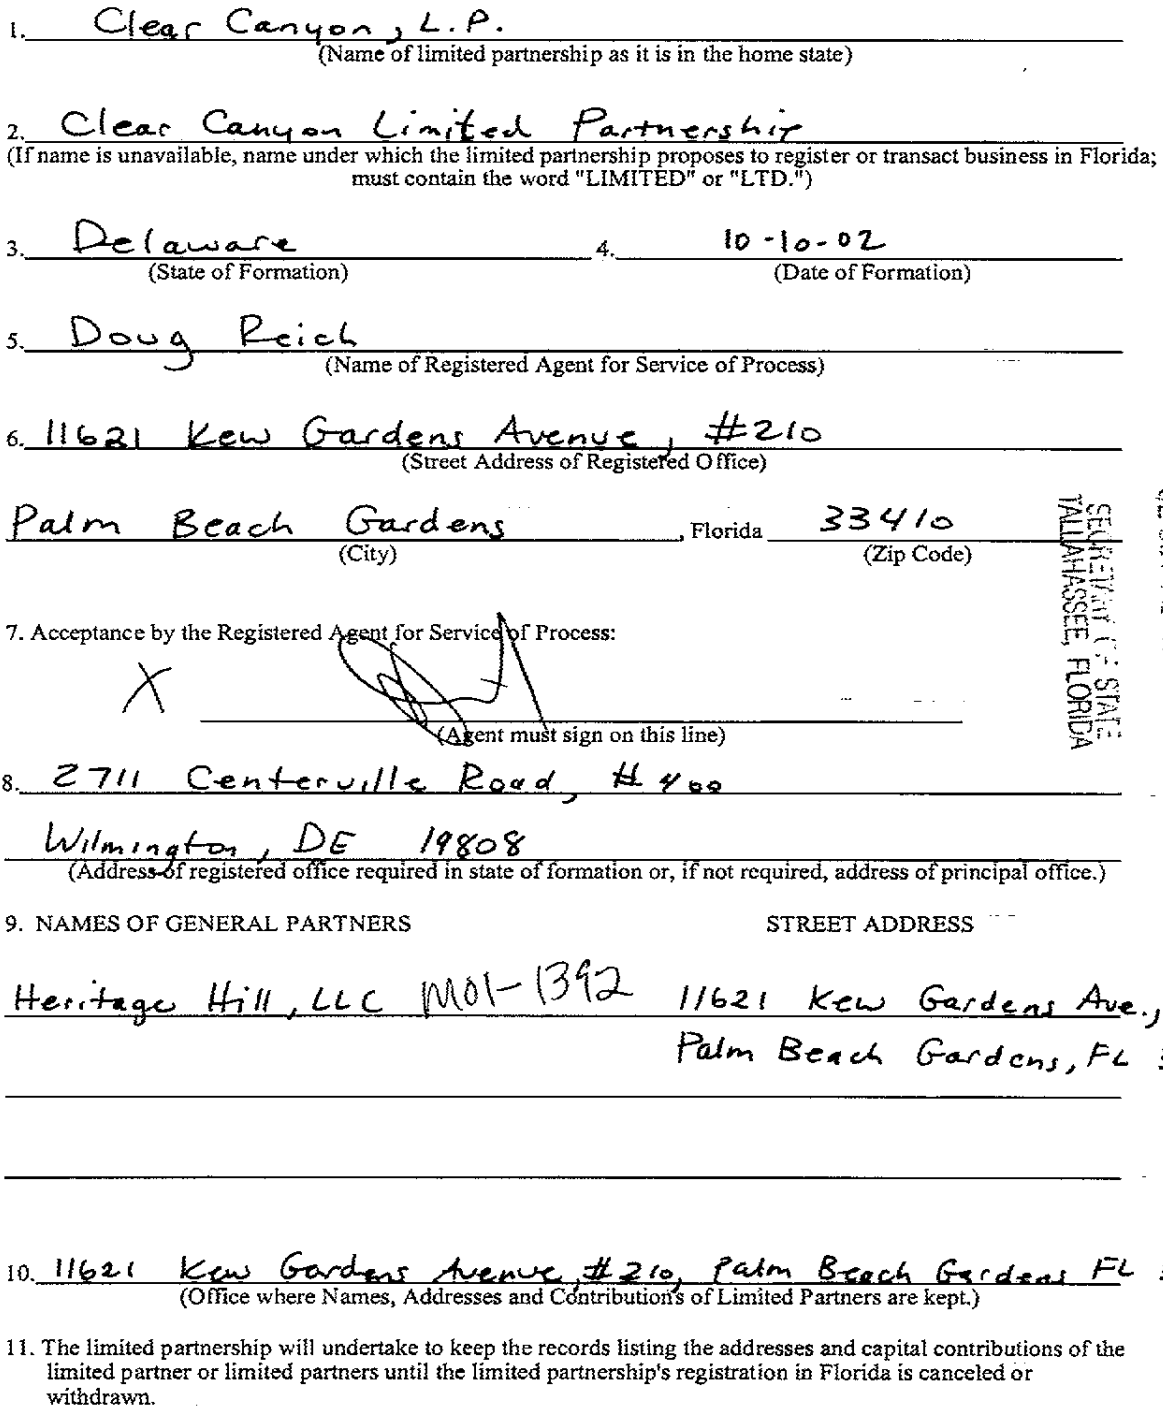 1. Clear Canyon, L.P.
(Name of limited partnership as it is in the home state)
2. Clear Canyon Limited Partnership
(If name is unavailable, name under which the limited partnership proposes to register or transact business in Florida;
must contain the word "LIMITED" or "LTD.")
3. Delaware 4. 10-10-02
(State of Formation) (Date of Formation)
5. Doug Reich
(Name of Registered Agent for Service of Process)
6. 11621 Kew Gardens Avenue, #210
(Street Address of Registered Office)
Palm Beach Gardens, Florida 33410
(City) (Zip Code)
SECRETARY OF STATE
TALLAHASSEE, FLORIDA
7. Acceptance by the Registered Agent for Service of Process:
X
(Agent must sign on this line)
8. 2711 Centerville Road, #400
Wilmington, DE 19808
(Address of registered office required in state of formation or, if not required, address of principal office.)
9. NAMES OF GENERAL PARTNERS STREET ADDRESS
Heritage Hill, LLC M01-1392 11621 Kew Gardens Ave.,
Palm Beach Gardens, FL
10. 11621 Kew Gardens Avenue, #210, Palm Beach Gardens FL
(Office where Names, Addresses and Contributions of Limited Partners are kept.)
11. The limited partnership will undertake to keep the records listing the addresses and capital contributions of the
limited partner or limited partners until the limited partnership's registration in Florida is canceled or
withdrawn.